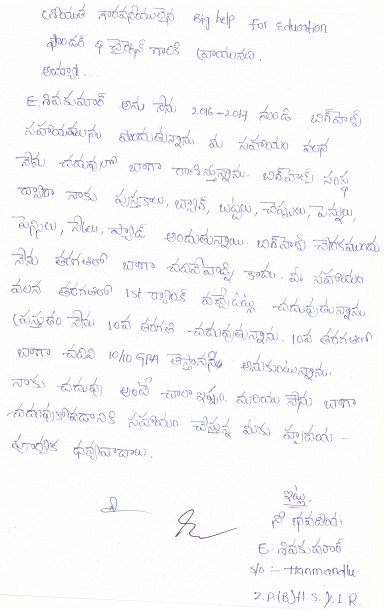 శ్రీయుత గౌరవనీయులైన Big help for Education
ఫౌండర్ & ఛైర్మెన్ గారికి వ్రాయునది.
అయ్యా!...
E. శివకుమార్ అను నేను 2016-2017 నుండి బిగ్‌హెల్ప్
సహాయమును పొందుతున్నాను. మీ సహాయం వలన
నేను చదువులో బాగా రాణిస్తున్నాను. బిగ్‌హెల్ప్ సంస్థ
ద్వారా నాకు పుస్తకాలు, బ్యాగ్, బట్టలు, చెప్పులు, పెన్నులు,
పెన్సిలు, స్కేలు, ప్యాడ్ అందుతున్నాయి. బిగ్‌హెల్ప్ చేరకముందు
నేను తరగతిలో బాగా చదివేవాడ్ని కాదు. మీ సహాయం
వలన తరగతిలో 1st ర్యాంక్ వచ్చేటట్లు చదువుతున్నాను.
ప్రస్తుతం నేను 10వ తరగతి చదువుతున్నాను. 10వ తరగతిలో
బాగా చదివి 10/10 GPA తెస్తానని అనుకుంటున్నాను.
నాకు చదువు అంటే చాలా ఇష్టం. మరియు నేను బాగా
చదువుకోవడానికి సహాయం చేస్తున్న మీకు హృదయ -
పూర్వక ధన్యవాదాలు.
ఇట్లు,
మీ భవదీయ
E. శివకుమార్
s/o :- Hanmandlu
Z.P.(B)H.S. Y.L.R.